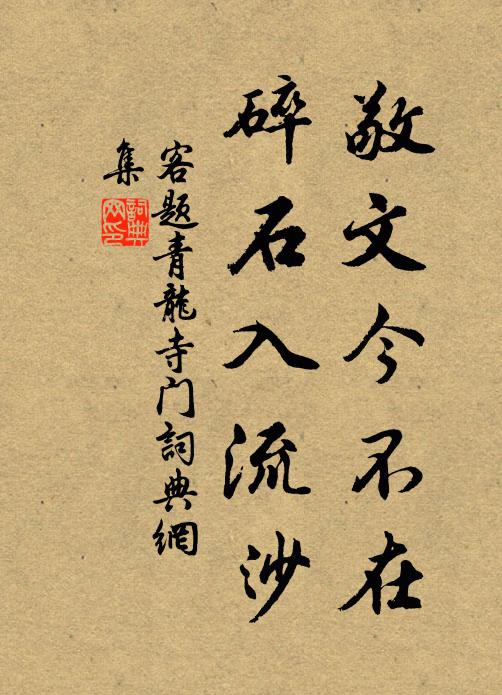 敬文今不在
碎石入流沙
客题青龍寺门詞典網
集
詞典
网印